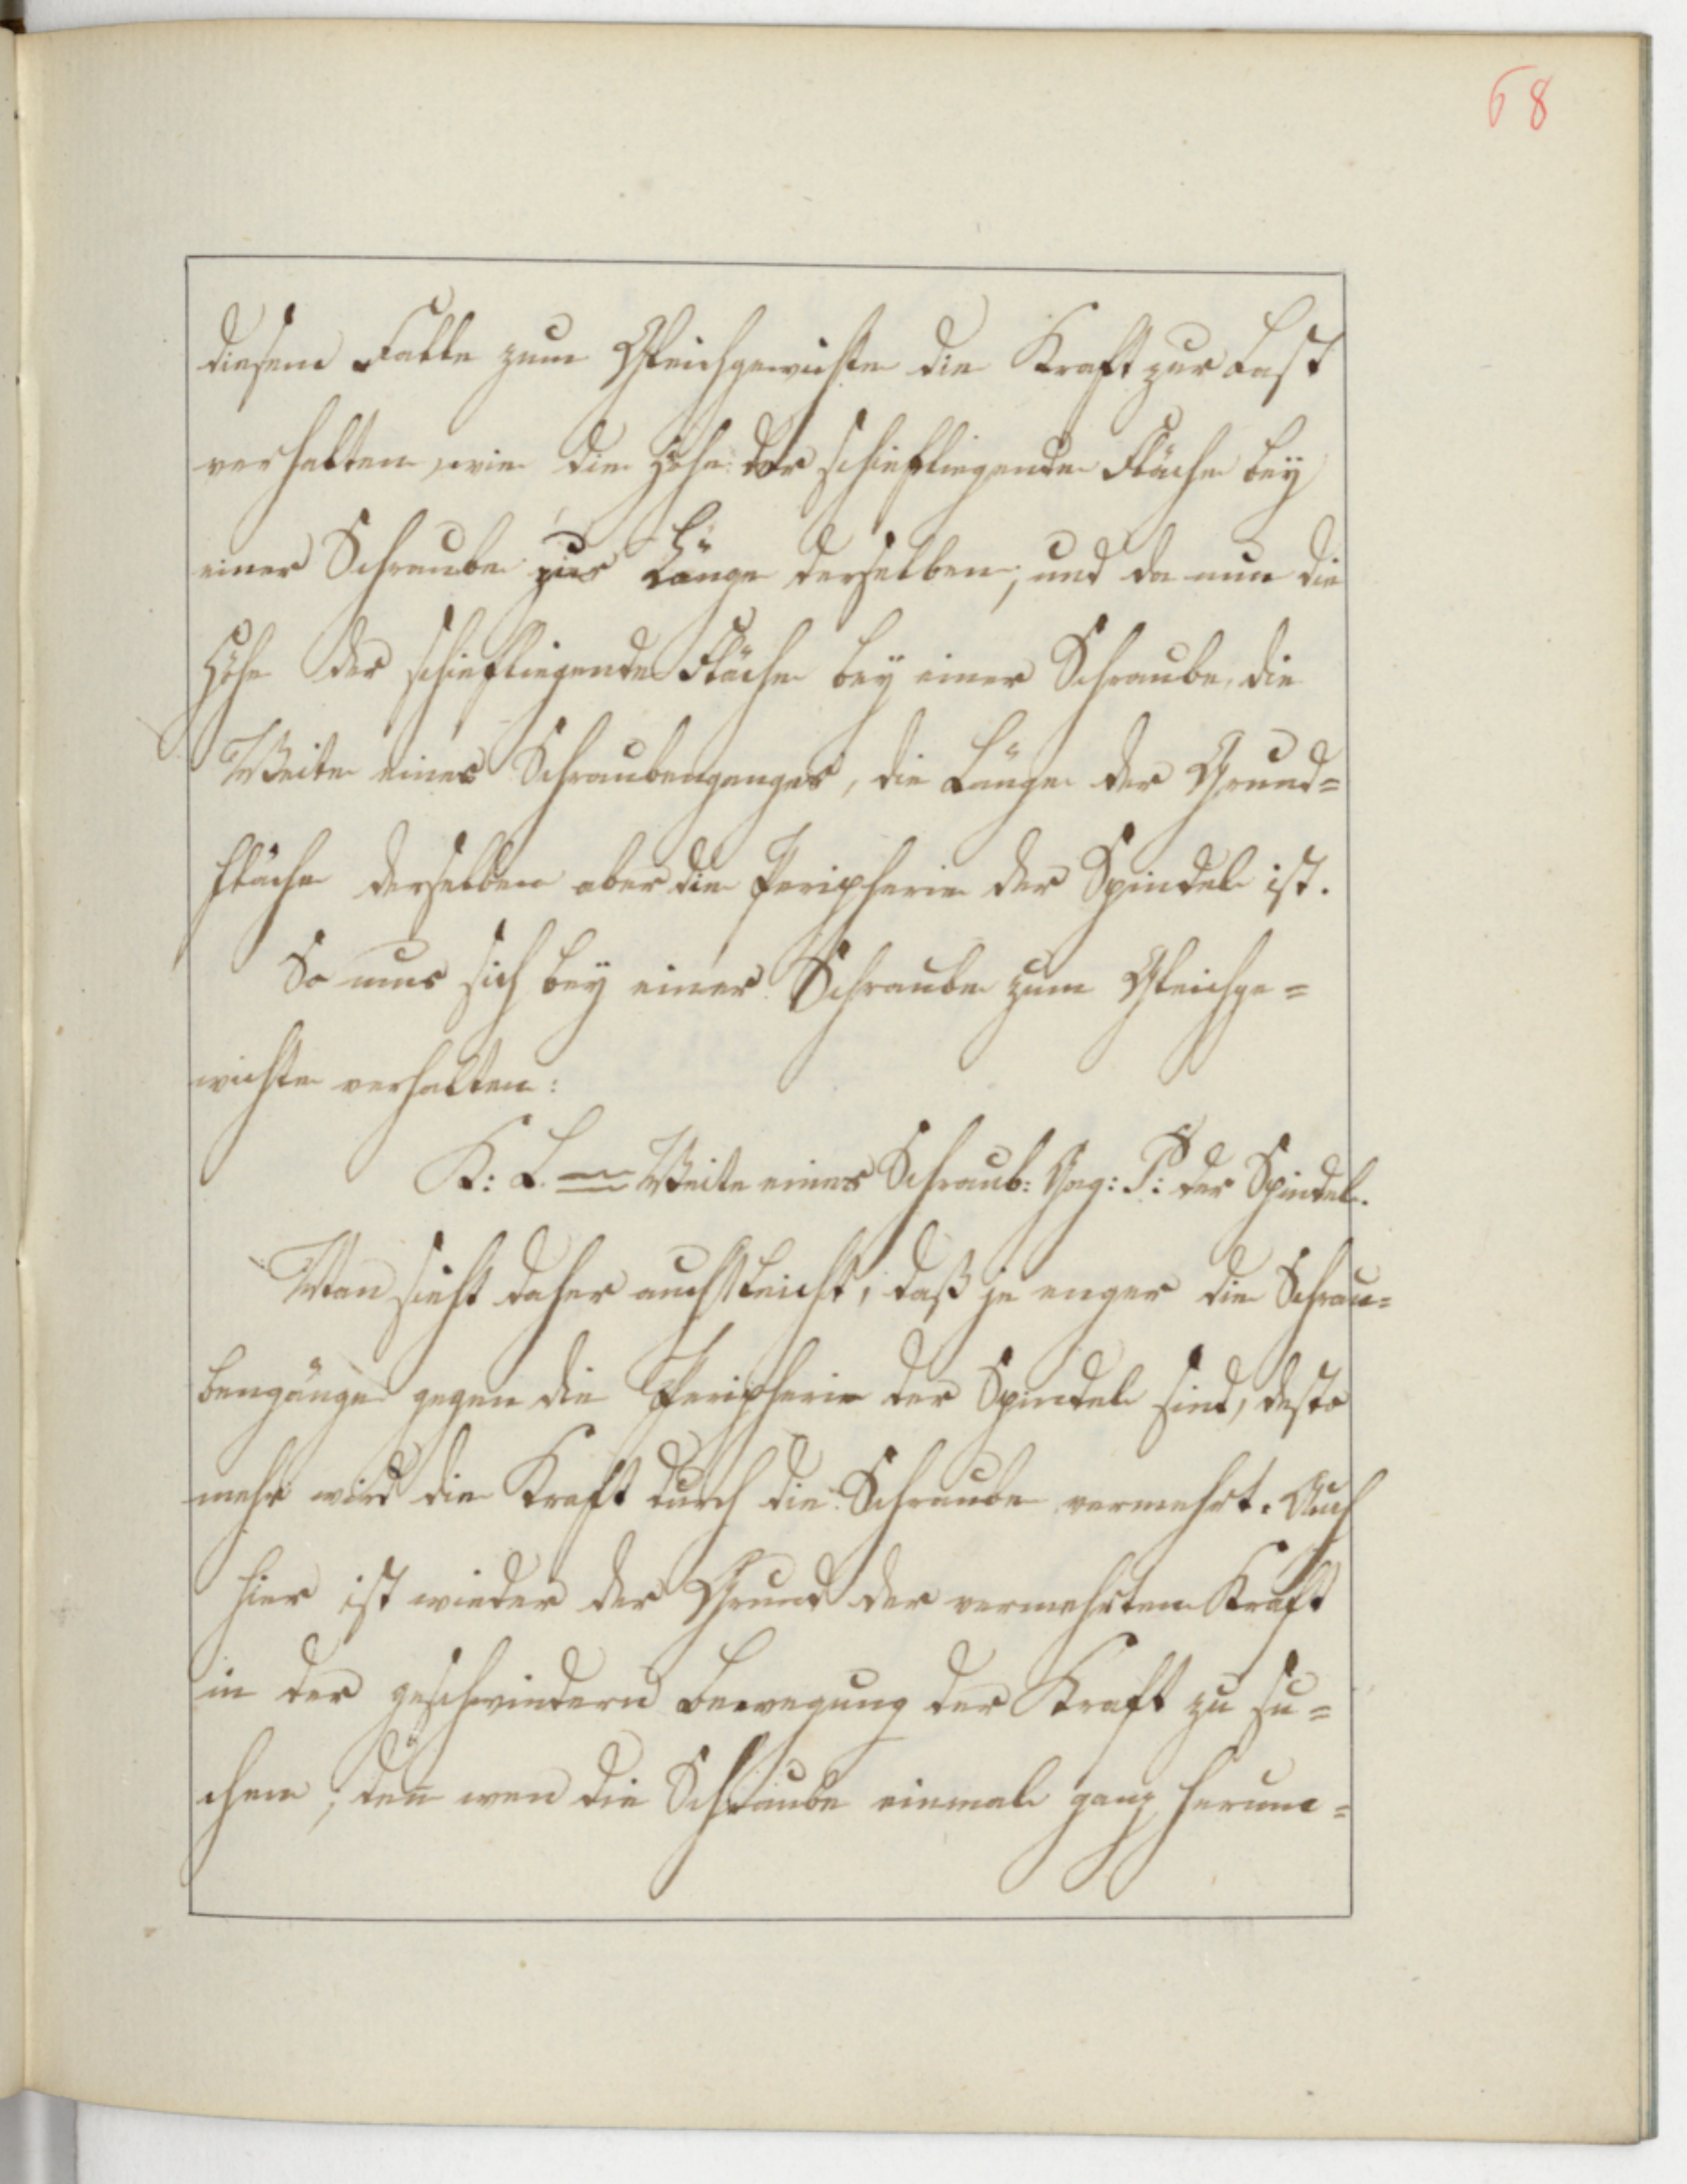 68
diesem Falle zum Gleichgewichte die Kraft zur Last
verhalten, wie die Höhe der schiefliegende Fläche bey
einer Schraube zur Länge derselben; und da nun die
Höhe der schiefliegende Fläche bey einer Schraube, die
Weite eines Schraubenganges, die Länge der Grund=
fläche derselben aber die Peripherie der Spindel ist.
So mus sich bey einer Schraube zum Gleichge=
wichte verhalten:
K: L. = Weite eines Schraub: Gag: P: der Spindel.
Man sieht daher auch leicht, daß je enger die Schrau=
bengänge gegen die Peripherie der Spindel sind, desto
mehr wird die Kraft durch die Schraube vermehrt. Auch
hier ist wieder der Grund der vermehrten Kraft
in der geschwindern Bewegung der Kraft zu su=
chen; den̄ wen die Schraube einmal ganz herum=